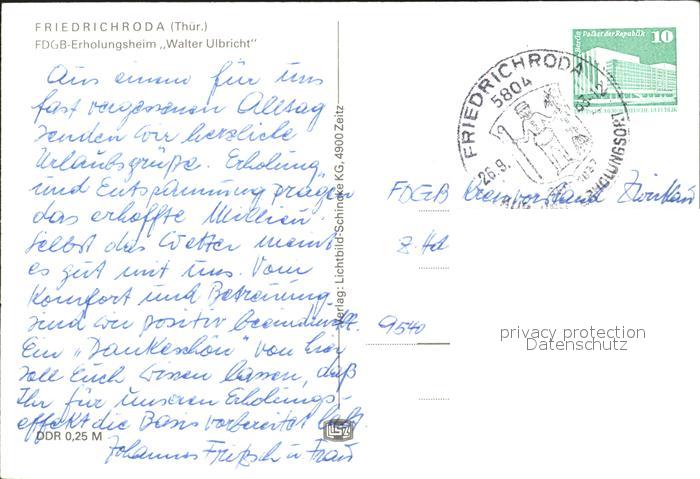 FRIEDRICHRODA (Thür.)
FDGB-Erholungsheim „Walter Ulbricht"
Aus einem für uns
fast vergessenen Alltag
senden wir herzliche
Urlaubsgrüße. Erholung
und Entspannung prägen
das erhoffte Milieu.
Selbst das Wetter meint
es gut mit uns. Vom
Komfort und Betreuung
sind wir positiv beeindruckt.
Ein „Dankeschön" von hier
soll Euch wissen lassen, daß
Ihr für unseren Erholungs-
effekt die Basis vorbereitet habt.
Johannes Fritzsch u Frau
DDR 0,25 M
Verlag: Lichtbild-Schincke KG, 4900 Zeitz
FRIEDRICHRODA
5804
26.9.
Berlin Palast der Republik 10
FDGB Kreisvorstand Zwickau
9540
privacy protection
Datenschutz